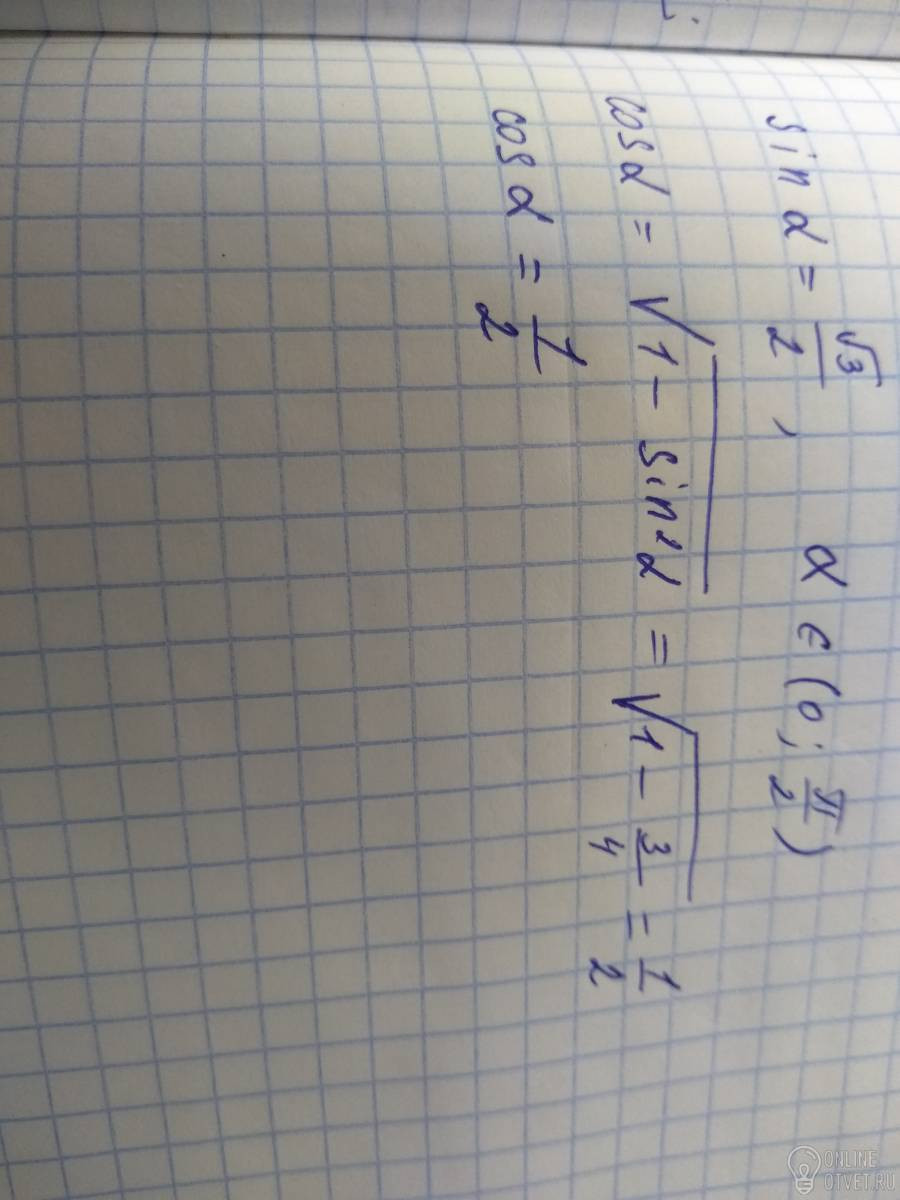 sin α = √3/2 , α ∈ (0; π/2)
cos α = √(1 - sin²α) = √(1 - 3/4) = 1/2
cos α = 1/2
ONLINE
OTVET.RU